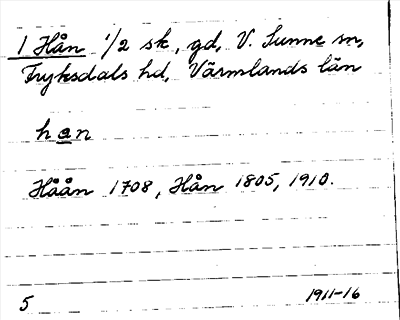 1 Hån 1/2 sk, gd, V. Sunne sn,
Fryksdals hd, Värmlands län
han
Håån 1708, Hån 1805, 1910.
5 1911-16